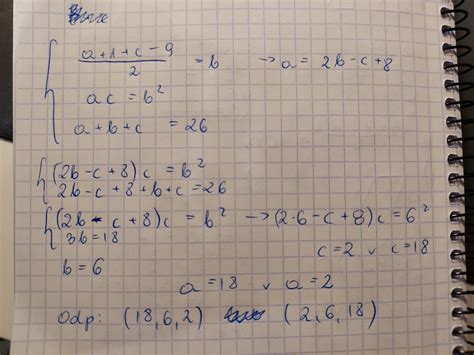 { (a+1+c-9)/2 = b → a = 2b-c+8
ac = b²
a+b+c = 26
{ (2b-c+8)c = b²
2b-c+8+b+c=26
{ (2b-c+8)c = b² → (2·6-c+8)c=6²
3b=18
c=2 v c=18
b=6
a=18 v a=2
Odp: (18,6,2) (2,6,18)